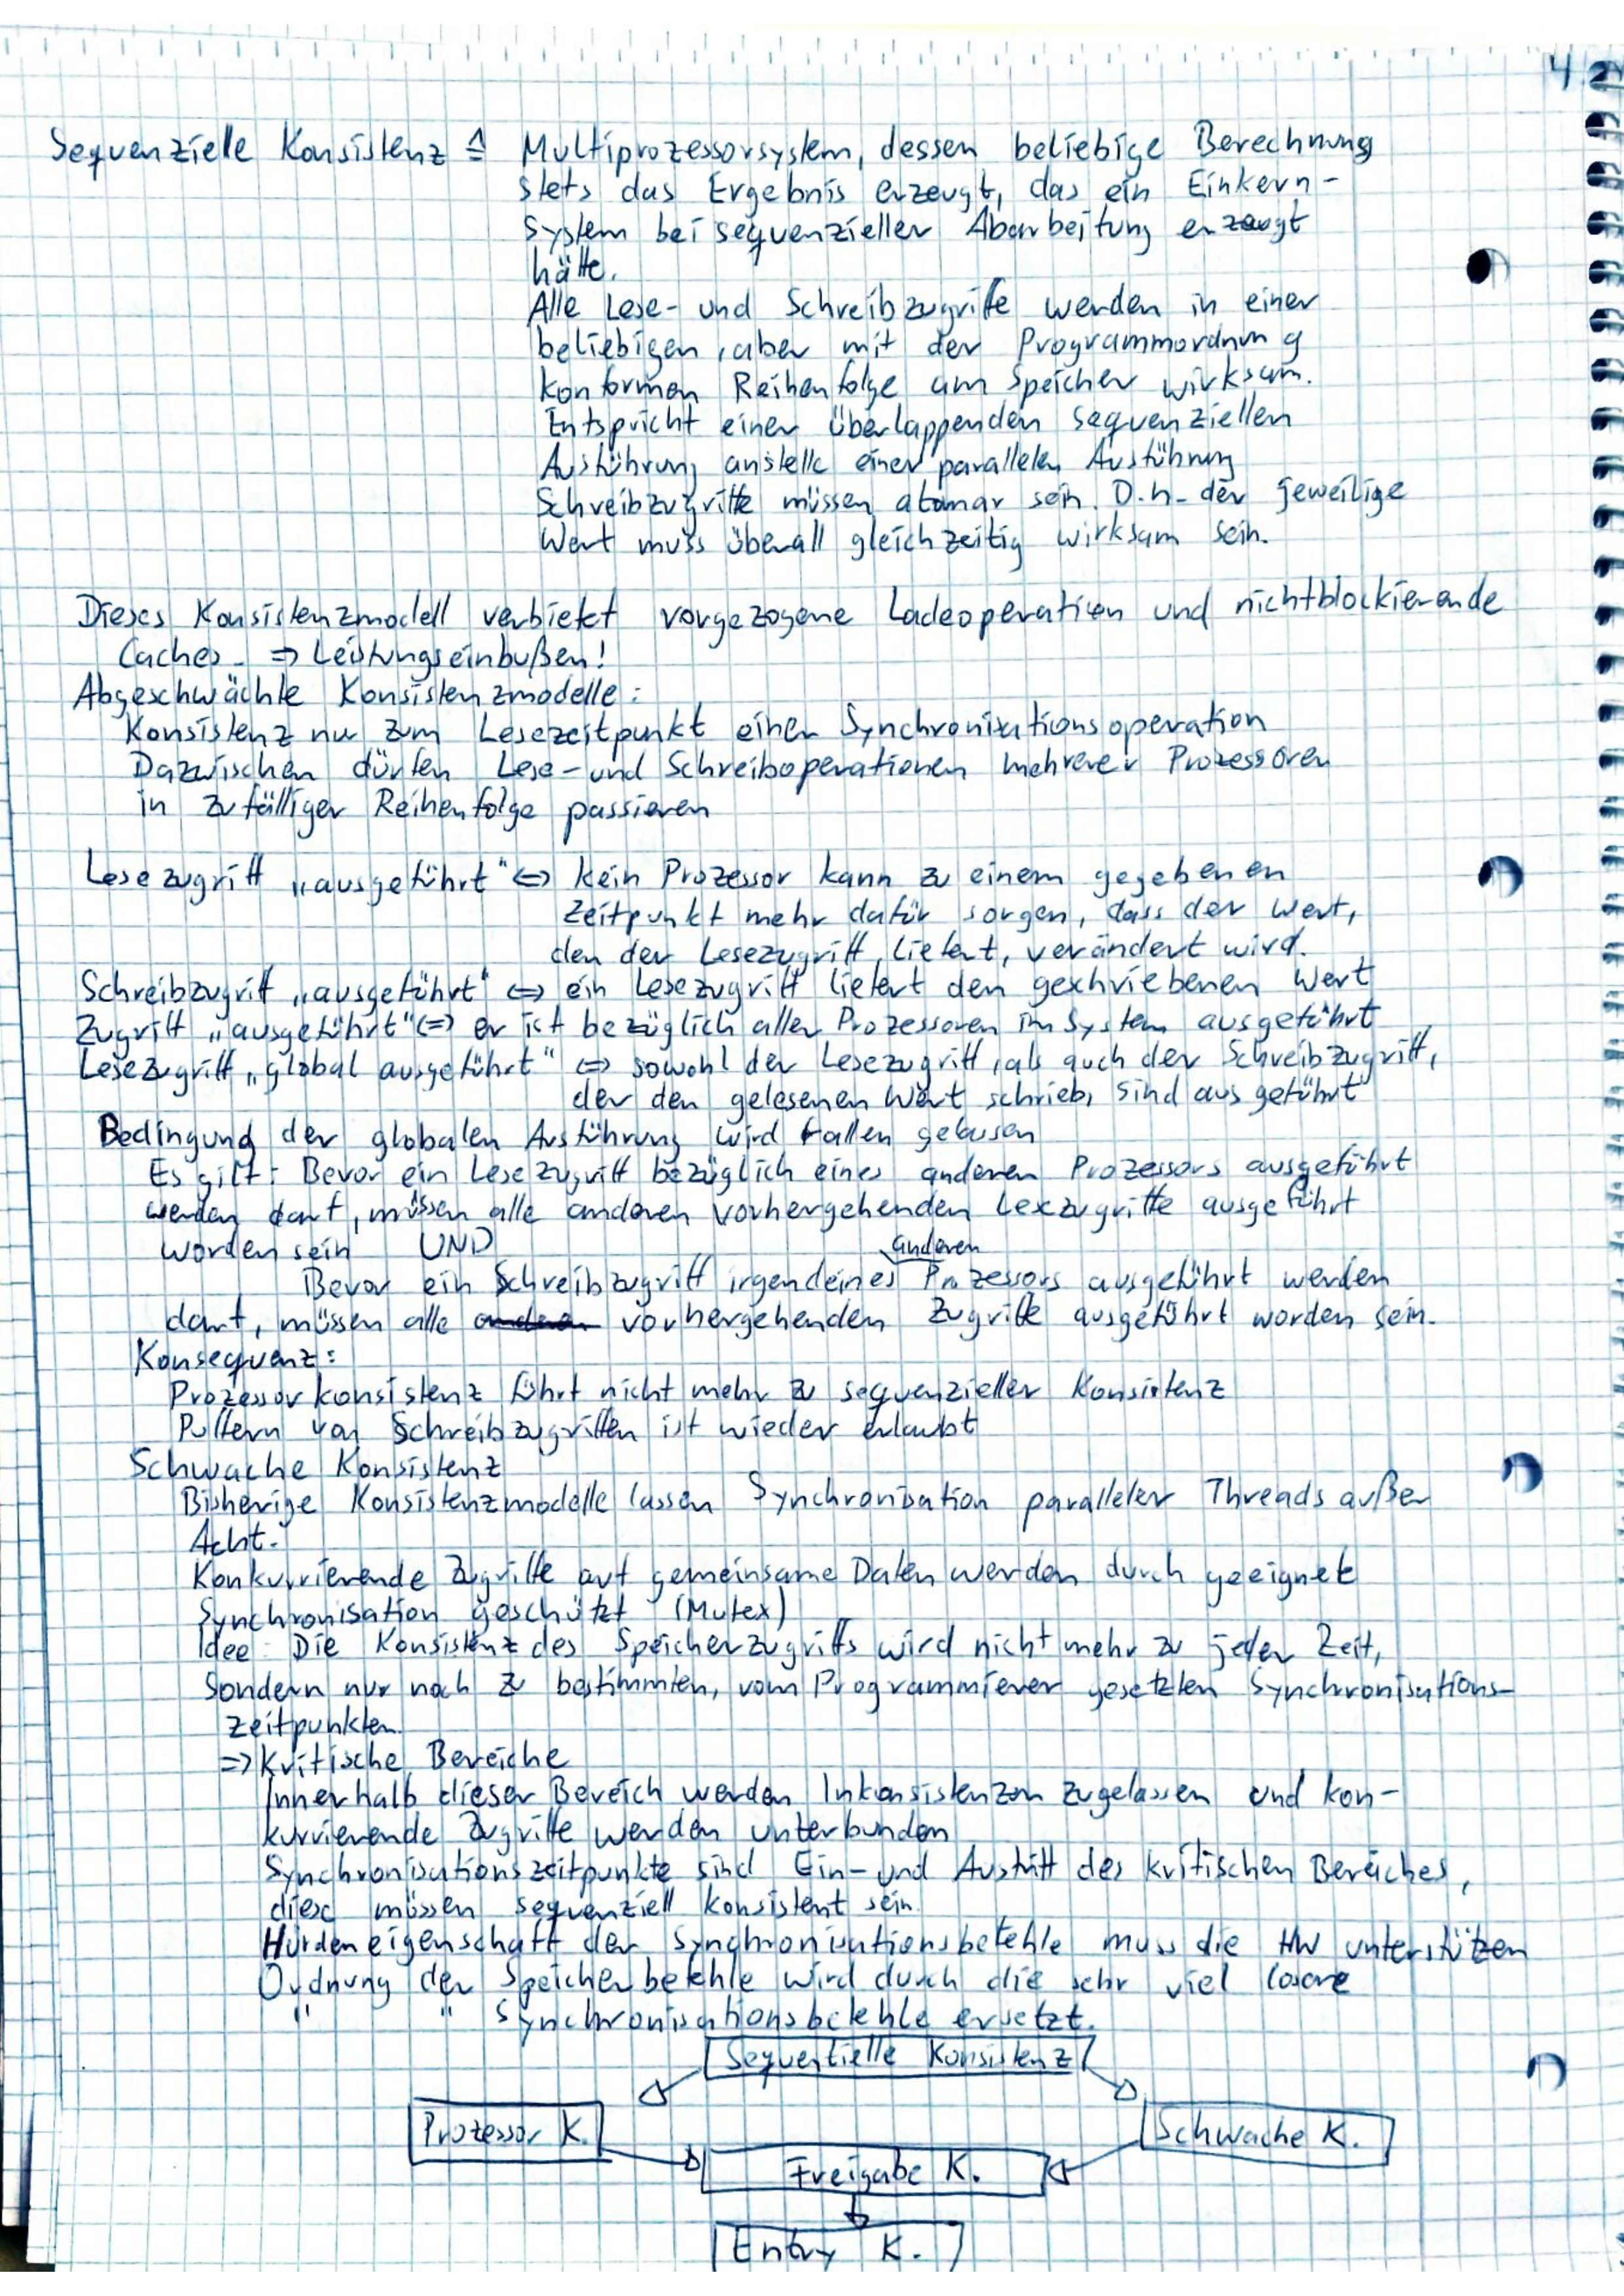 42
Sequenzielle Konsistenz ≙ Multiprozessorsystem, dessen beliebige Berechnung
stets das Ergebnis erzeugt, das ein Einkern-
System bei sequenzieller Abarbeitung erzeugt
hätte.
Alle Lese- und Schreibzugriffe werden in einer
beliebigen, aber mit der Programmordnung
konformen Reihenfolge am Speicher wirksam.
Entspricht einer überlappenden sequenziellen
Ausführung anstelle einer parallelen Ausführung
Schreibzugriffe müssen atomar sein. D.h. der jeweilige
Wert muss überall gleichzeitig wirksam sein.
Dieses Konsistenzmodell verbietet vorgezogene Ladeoperation und nichtblockierende
Caches. ⇒ Leistungseinbußen!
Abgeschwächte Konsistenzmodelle:
Konsistenz nur zum Lesezeitpunkt einer Synchronisationsoperation
Dazwischen dürfen Lese- und Schreiboperationen mehrerer Prozessoren
in zufälliger Reihenfolge passieren
Lesezugriff „ausgeführt" ⇔ kein Prozessor kann zu einem gegebenen
Zeitpunkt mehr dafür sorgen, dass der Wert,
den der Lesezugriff liefert, verändert wird.
Schreibzugriff „ausgeführt" ⇔ ein Lesezugriff liefert den geschriebenen Wert
Zugriff „ausgeführt" ⇔ er ist bezüglich aller Prozessoren im System ausgeführt
Lesezugriff „global ausgeführt" ⇔ sowohl der Lesezugriff, als auch der Schreibzugriff,
der den gelesenen Wert schrieb, sind ausgeführt
Bedingung der globalen Ausführung wird fallen gelassen
Es gilt: Bevor ein Lesezugriff bezüglich eines anderen Prozessors ausgeführt
werden darf, müssen alle anderen vorhergehenden Lesezugriffe ausgeführt
worden sein UND
anderen
Bevor ein Schreibzugriff irgendeines Prozessors ausgeführt werden
darf, müssen alle vorhergehenden Zugriffe ausgeführt worden sein.
Konsequenz:
Prozessorkonsistenz führt nicht mehr zu sequenzieller Konsistenz
Puffern von Schreibzugriffen ist wieder erlaubt
Schwache Konsistenz
Bisherige Konsistenzmodelle lassen Synchronisation paralleler Threads außer
Acht.
Konkurrierende Zugriffe auf gemeinsame Daten werden durch geeignete
Synchronisation geschützt (Mutex)
Idee: Die Konsistenz des Speicherzugriffs wird nicht mehr zu jeder Zeit,
sondern nur noch zu bestimmten, vom Programmierer gesetzten Synchronisations-
zeitpunkten
⇒ Kritische Bereiche
Innerhalb dieser Bereich werden Inkonsistenzen zugelassen und kon-
kurrierende Zugriffe werden unterbunden
Synchronisationszeitpunkte sind Ein- und Austritt des kritischen Bereiches,
diese müssen sequenziell konsistent sein.
Hürdeneigenschaft der Synchronisationsbefehle muss die HW unterstützen
Ordnung der Speicherbefehle wird durch die sehr viel losere
" " Synchronisationsbefehle ersetzt.
Sequentielle Konsistenz
Prozessor K.
Schwache K.
Freigabe K.
Entry K.